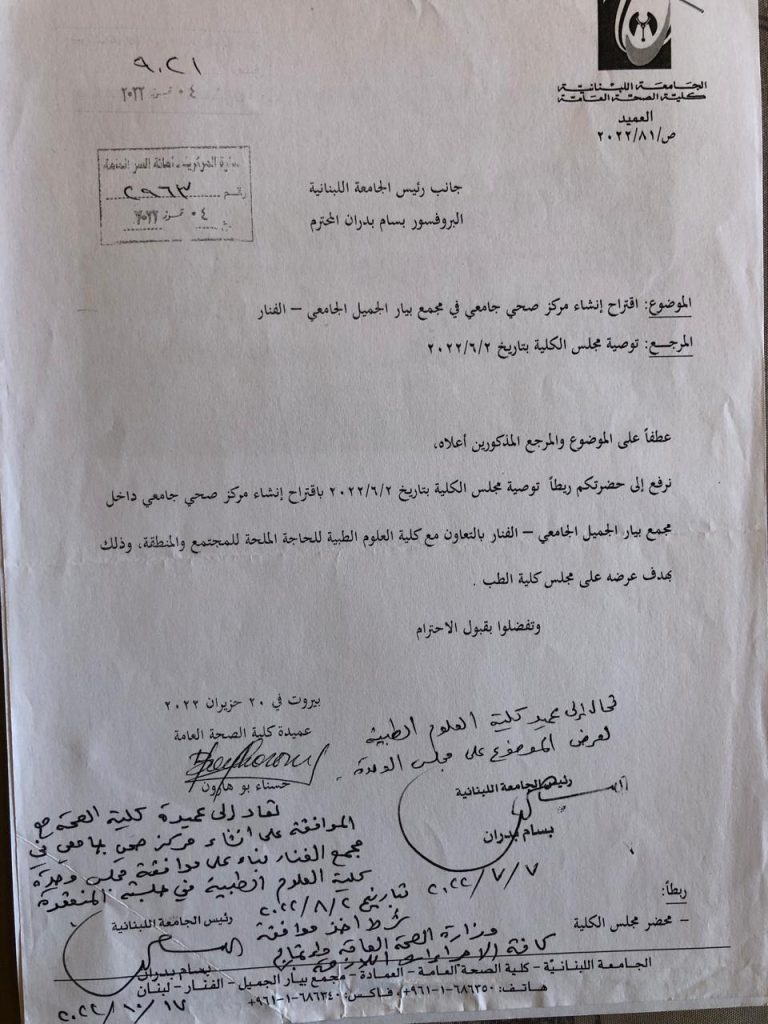 ٩٠٢١
٠٤ تموز ٢٠٢٢
الجامعة اللبنانية
كلية الصحة العامة
العميد
ص/٢٠٢٢/٨١
رقم ٢٩٦٣
٠٤ تموز ٢٠٢٢
جانب رئيس الجامعة اللبنانية
البروفسور بسام بدران المحترم
الموضوع: اقتراح إنشاء مركز صحي جامعي في مجمع بيار الجميل الجامعي – الفنار
المرجـــع: توصية مجلس الكلية بتاريخ ٢٠٢٢/٦/٢
عطفاً على الموضوع والمرجع المذكورين أعلاه،
نرفع إلى حضرتكم ربطاً توصية مجلس الكلية بتاريخ ٢٠٢٢/٦/٢ باقتراح إنشاء مركز صحي جامعي داخل
مجمع بيار الجميل الجامعي – الفنار بالتعاون مع كلية العلوم الطبية للحاجة الملحة للمجتمع والمنطقة، وذلك
بهدف عرضه على مجلس كلية الطب .
وتفضلوا بقبول الاحترام
بيروت في ٢٠ حزيران ٢٠٢٢
عميدة كلية الصحة العامة
حسناء بو هارون
تحال إلى عميد كلية العلوم الطبية
لعرض الموضوع على مجلس الوحدة.
رئيس الجامعة اللبنانية
بسام بدران
٢٠٢٢/٧/٧
تعاد إلى عميدة كلية الصحة مع
الموافقة على انشاء مركز صحي جامعي في
مجمع الفنار بناء على موافقة مجلس وحدة
كلية العلوم الطبية في جلسته المنعقدة
بتاريخ ٢٠٢٢/٨/٢
شرط اخذ موافقة
وزارة الصحة العامة
كافة الاجراءات اللازمة
رئيس الجامعة اللبنانية
بسام بدران
٢٠٢٢/١٠/١٧
ربطاً:
– محضر مجلس الكلية
الجامعة اللبنانيّة – كلية الصحة العامة – العمادة – مجمع بيار الجميل – الفنار – لبنان
هاتف: ٦٨٦٣٥٠-١-٩٦١+، فاكس: ٦٨٦٣٤٠-١-٩٦١+